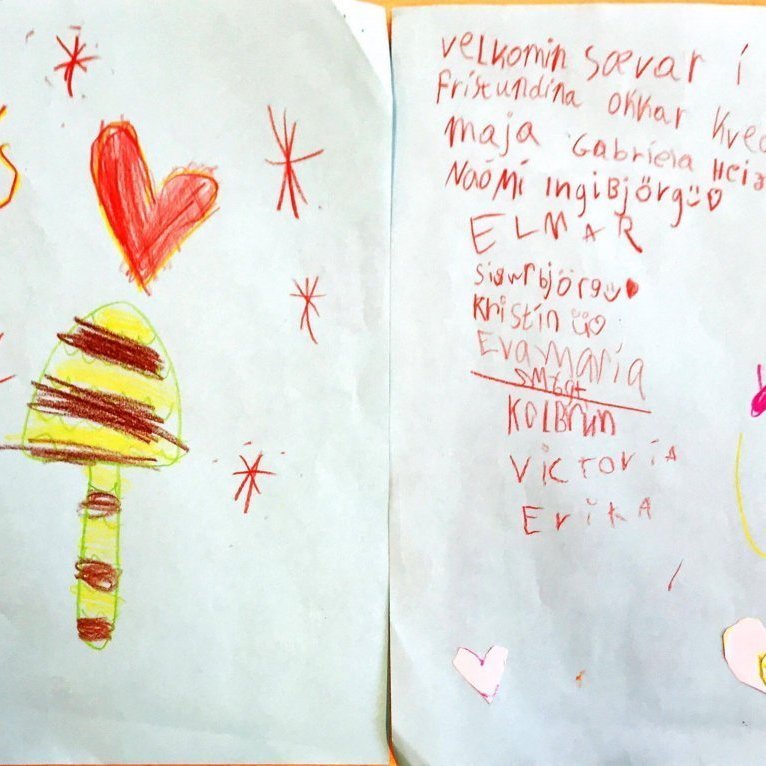 velkomin Sævar í
Frístundina okkar Kveð
maja Gabriela Hei
Naómí IngiBjörg
ELMAR
Sigurbjörg
Kristín
Eva María
KOLBrún
VICTORIA
ErikA